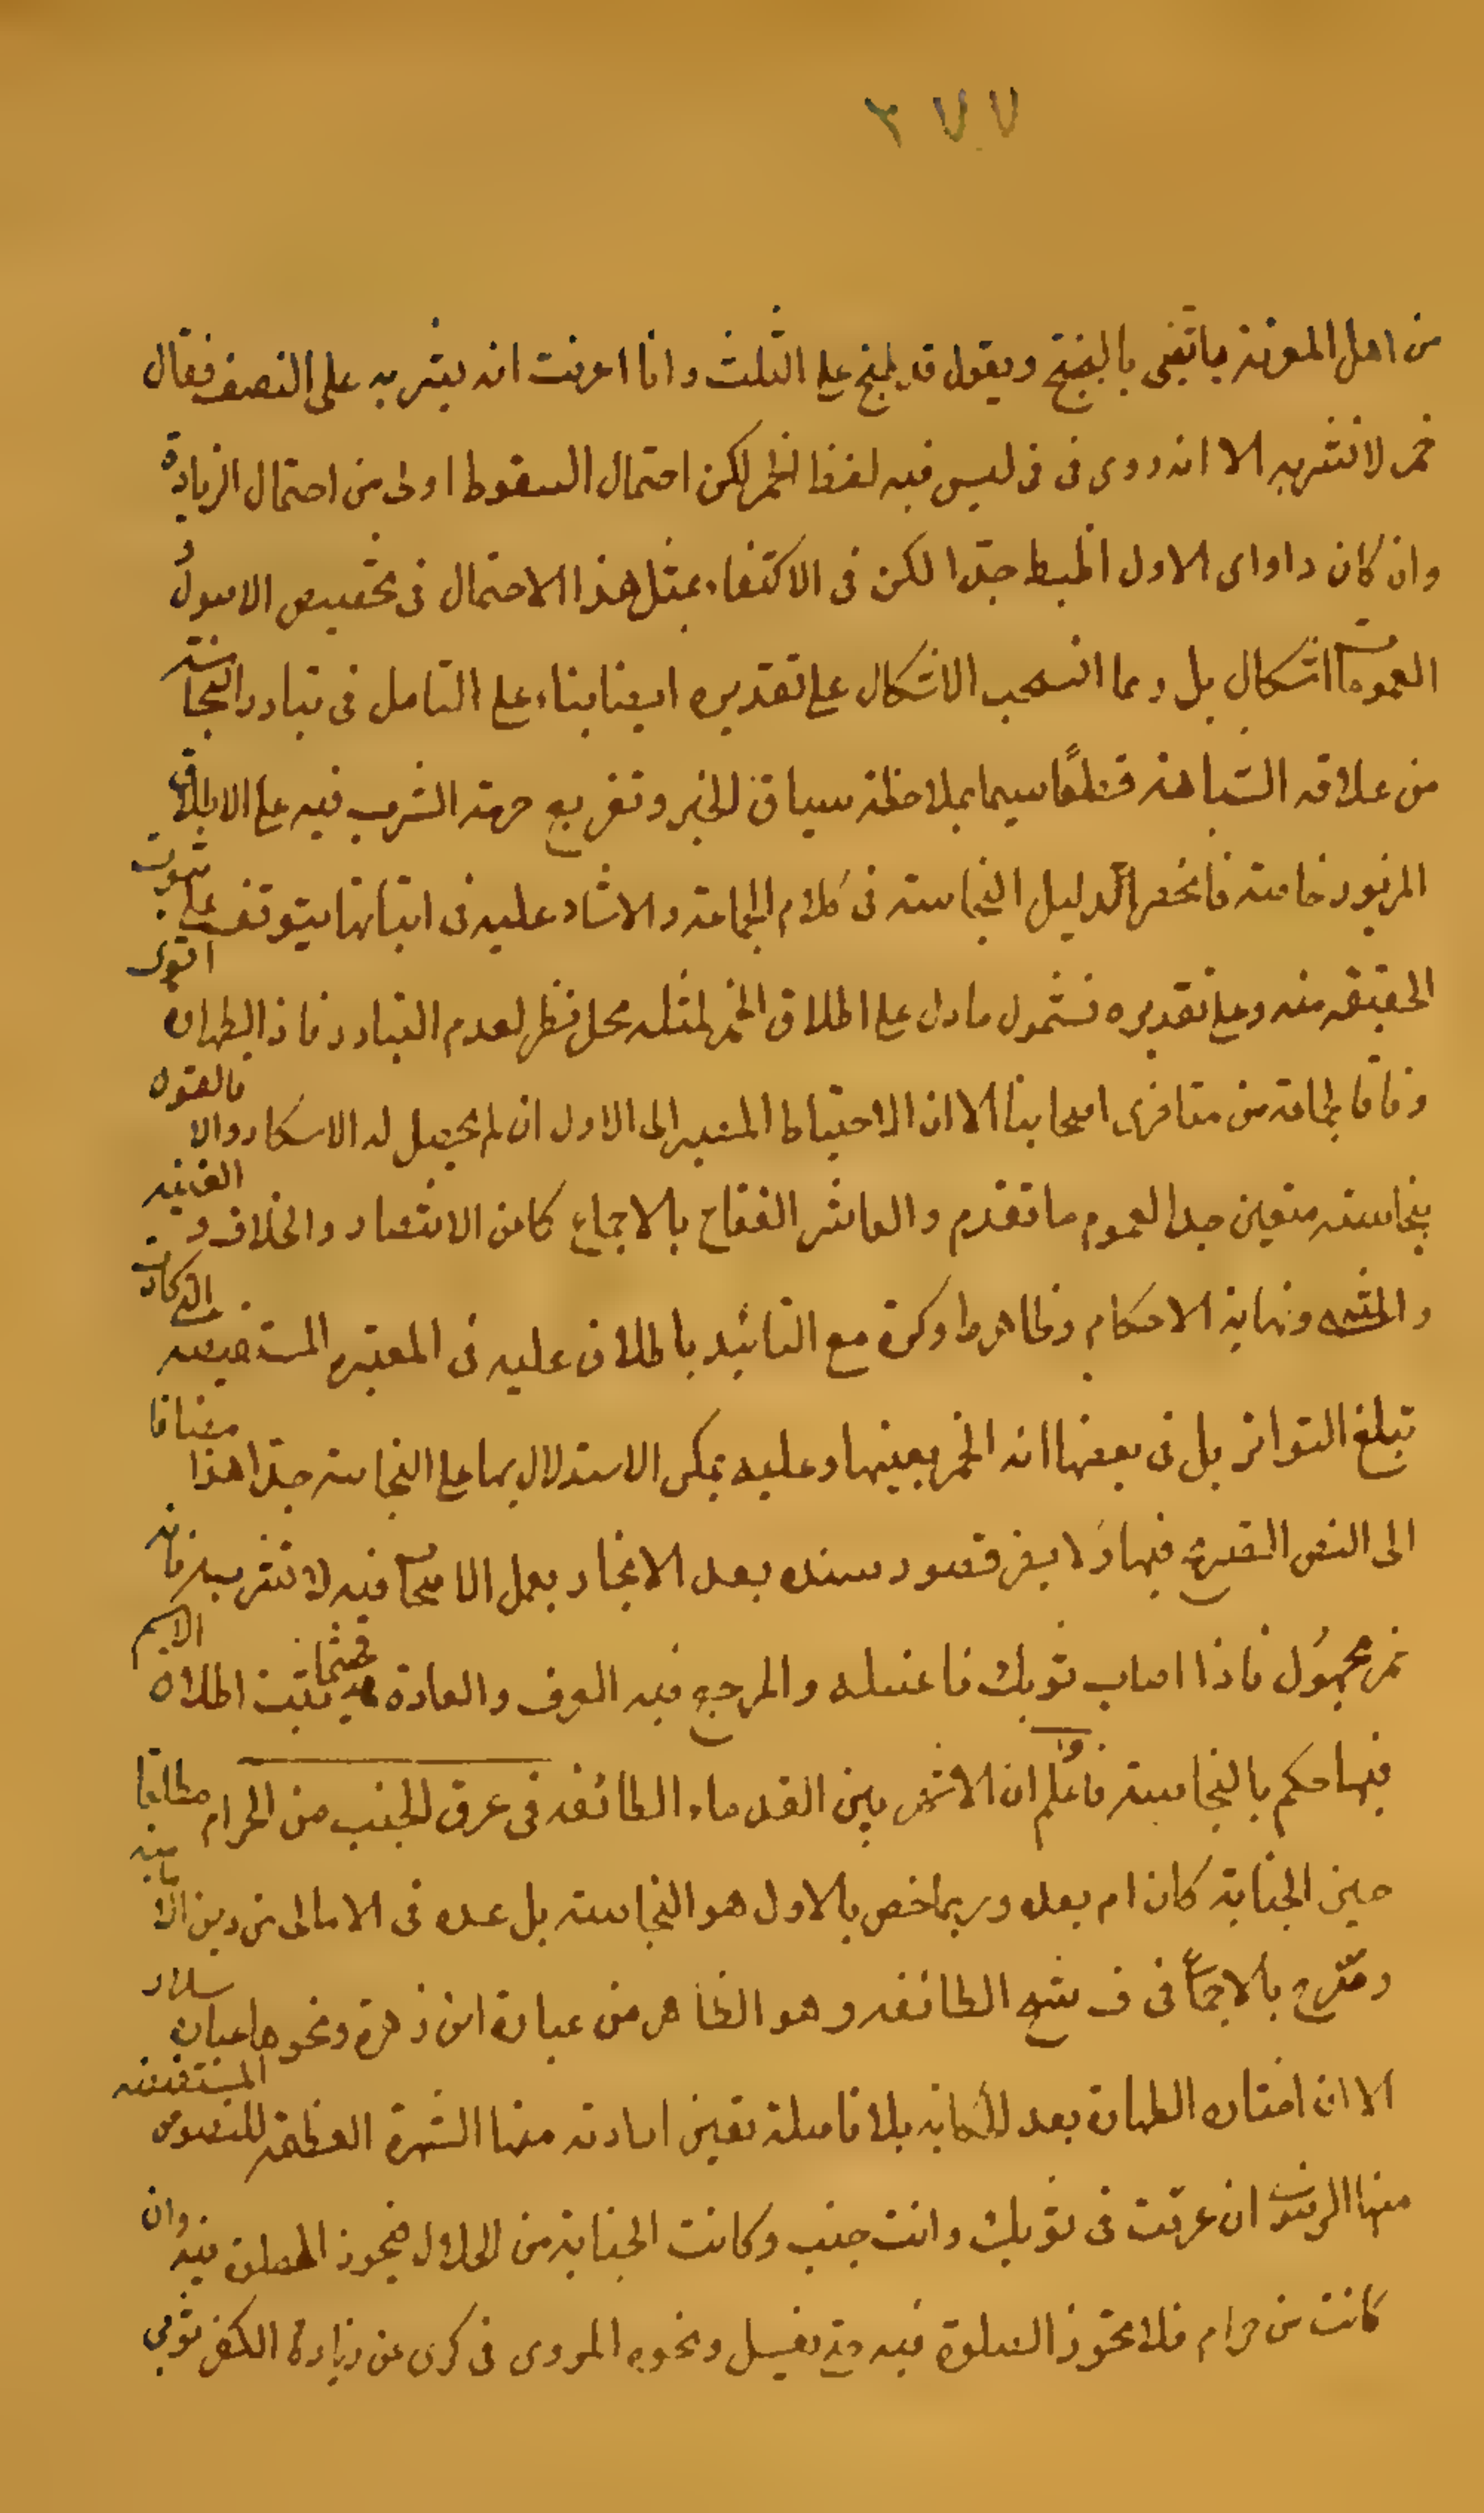 ٢٧٧
من اهل المعرفة يأتيني بالبختج ويقول قد طبخ على الثلث وانا اعرفت انه يشربه على النصف فقال
خمر لا تشربه الا انه روى في في ليس فيه لفظ الخمر لكن احتمال السقوط اولى من احتمال الزيادة
وان كان دا واى الاول اظبط جدّا لكن فى الاكتفاء بمثل هذا الاحتمال فى تخصيص الاصول و
العمومات اشكال بل ربما انسحب الاشكال على تقديره ايضا بناء على التامل فى تبادر النجاسة
من علاقه الشباهة قطعًا سيما بملاحظة سياق الخبر وتفريع حرمة الشرب فيه على الاطلاق
المزبور خاصة فانحصر الدليل النجاسة فى كلام الجماعة والاشاد عليه فى اثباتها يتوقف على ثبوت
الحقيقه منه وعلى تقديره فشمول ما دل على اطلاق الخمر لمثله محل نظر لعدم التبادر فاذا الطهارة اقوى
وفاقا لجماعة من متاخرى اصحابنا الا ان الاحتياط المصير الى الاول ان لم يحصل له الاسكار والا فالقول
بنجاسته متعين جدا لعموم ما تقدم والعاشر الفقاع بالاجماع كما من الانتصار والخلاف و الغنيه
والمنتهى ونهاية الاحكام وظاهر ط وكرة مع التائيد باطلاق عليه فى المعتبره المستفيضه التى كادت
تبلغ التواتر بل فى بعضها انه الخمر بعينها وعليه يمكن الاستدلال بها على النجاسة جدّا هذا مضافا
الى النص الصريح فيها ولا يضر قصور سنده بعد الانجبار بعمل الاصحاب فيه لا تشربه فانه
خمر مجهول فاذا اصاب ثوبك فاغسله والمرجع فيه العرف والعادة فحيثما يثبت اطلاق الاسم
فيها حكم بالنجاسة واعلم ان الاشهر بين القدماء الطائفه فى عرق الجنب من الحرام مطلقا
حين الجنابة كان ام بعده وربما خص بالاول هو النجاسة بل عده فى الامالى من دين الامامية
وصرّح بالاجماع فى ف شيخ الطائفه وهو الظاهر من عبارة ابن زهرة ونحوها عبارة سلار
الا ان اختياره الطهارة بعد الحكاية بلا فاصلة تعين ارادته منها الشهرة العظيمة للنصوص المستفيضه
منها الرضوى ان عرقت فى ثوبك وانت جنب وكانت الجنابة من الحلال فيجوز الصلوة فيه وان
كانت من حرام فلا يجوز الصلوة فيه حتى يغسل ونحوه المروى فى كرى عن زيارة الكفرتوثى